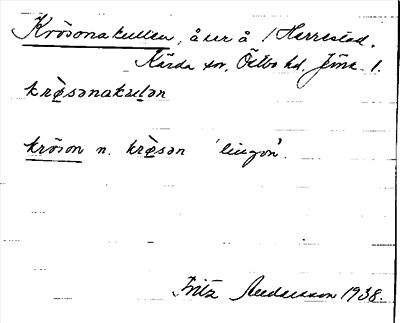 Krösonakullen, åker å Harrestad,
Kärda sn, Östbo hd, Jönk. l.
krø̀sənakulən
kröson n. krø̀sən 'lingon'.
Fritz Andersson 1938.